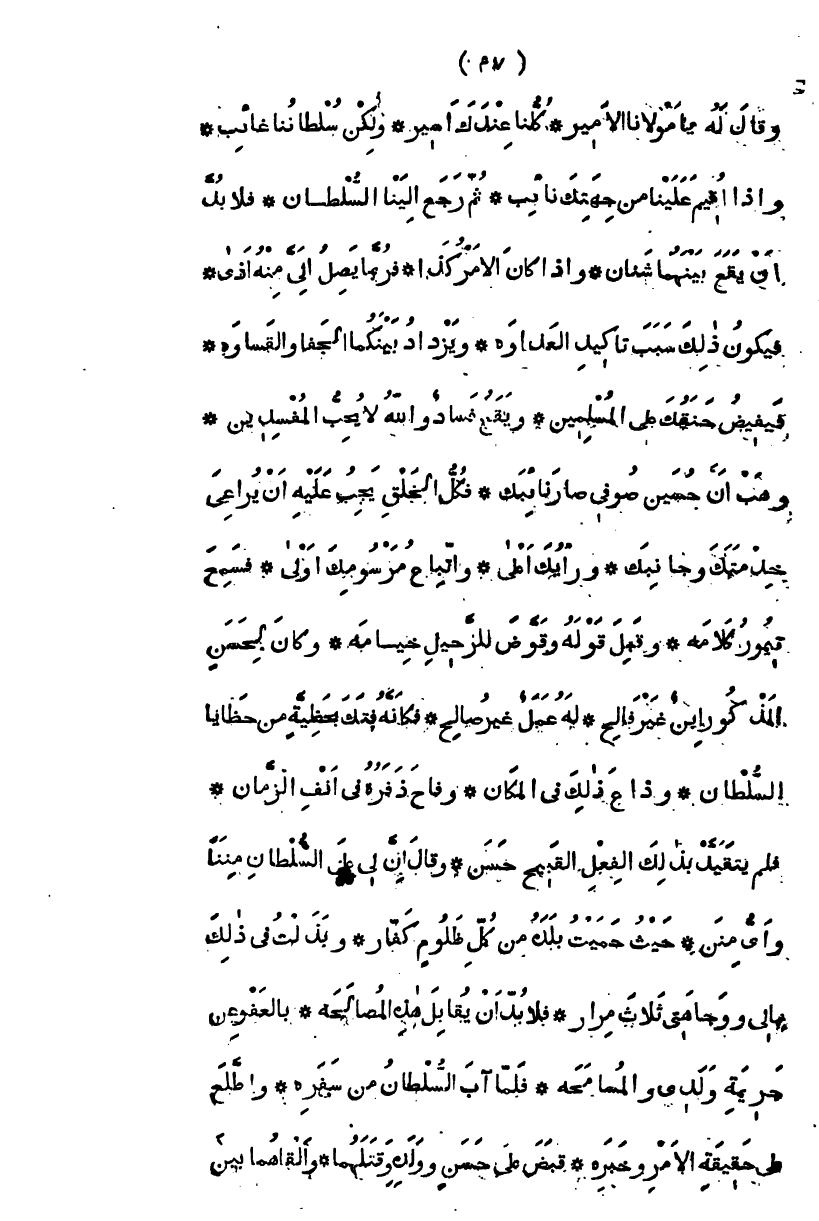 ( ٣٧ )
وقالَ لَهُ يامَوْلانا الاَمِير * كُلُّنا عِنْدَكَ اَسِير * ولٰكِنْ سُلْطانُنا غائِب *
واذا اُقِيم عَلَيْنا من جِهَتِكَ نائِب * ثُمَّ رَجَع اِلَيْنا السُّلْطان * فلا بُدَّ
اَنْ يَقَعَ بَيْنَهُما شَنَان * واذا كانَ الاَمْرُ كَذا * فرُبَّما يَصِلُ اِلَىَّ مِنْهُ اَذىٰ *
فيَكونُ ذٰلِكَ سَبَبَ تاكِيدِ العَداوَه * ويَزْدادُ بَيْنَكُما الجَفا والقَساوَه *
فيَفِيضُ حَنَقُكَ على المُسْلِمين * ويَقَعُ فَسادٌ واللّٰهُ لا يُحِبُّ المُفْسِدِين *
وهَبْ اَنَّ حُسَين صُوفى صارَ نائِبَك * فكُلُّ الخَلْقِ يَجِبُ عَلَيْهِ اَنْ يُراعِىَ
خِدْمَتَكَ وجانِبَك * ورَأْيُكَ اَعْلىٰ * واتّباعُ مَرْسُومِكَ اَوْلىٰ * فسَمِعَ
تيمُورُ كَلامَه * وقَبِلَ قَوْلَهُ وقَوَّضَ للرَّحِيلِ خِيامَه * وكانَ لِحَسَنٍ
المَذْكُورِ اِبنٌ غَيْرُ فالِح * لَهُ عَمَلٌ غَيرُ صالِح * فكَاَنَّهُ فتَكَ بحَظِيَّةٍ من حَظايا
السُّلْطان * وذاعَ ذٰلِكَ فى المَكان * وفاحَ ذَفَرُهُ فى اَنْفِ الزَّمان *
فلم يتَقَيَّدْ بذٰلِكَ الفِعْلِ القَبِيح حَسَن * وقالَ اِنَّ لِى على السُّلْطانِ مِنَناً
واَىُّ مِنَن * حَيْثُ حَمَيْتُ بلَدَهُ من كُلِّ ظَلُومٍ كَفّار * وبَذَلْتُ فى ذٰلِكَ
مالِى ووَجاهَتِى ثَلاثَ مِرار * فلا بُدَّ اَنْ يُقابِلَ هٰذِهِ المُصالَحَه * بالعَفْوِ عن
جَرِيمَةِ وَلَدِى والمُسامَحَه * فلَمّا آبَ السُّلْطانُ من سَفَرِه * واطَّلَعَ
على حَقِيقَةِ الاَمْرِ وخَبَرِه * قبَضَ على حَسَنٍ ووَلَدِهِ وقَتَلَهُما * واَلْقاهُما بين